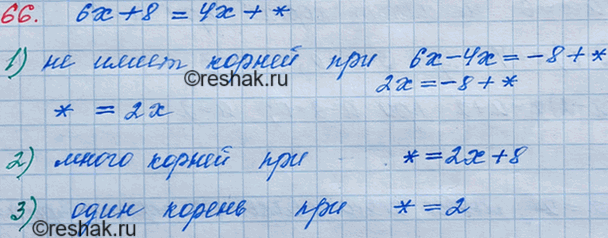 66. 6x+8 = 4x+*
1) не имеет корней при 6x-4x=-8+*
©reshak.ru
2x=-8+*
* = 2x
2) много корней при *=2x+8
3) один корень при *=2
©reshak.ru